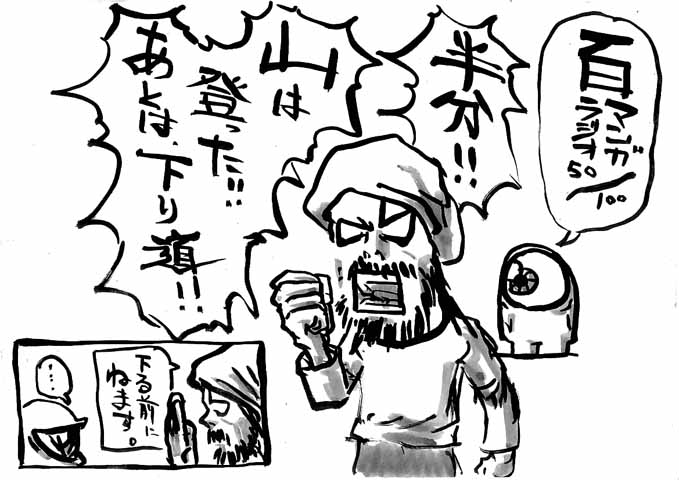 百マンガ
ラジオ
50/100
半分!!
山は
登った!!
あとは、下り道!!
下る前に
ねます。
…